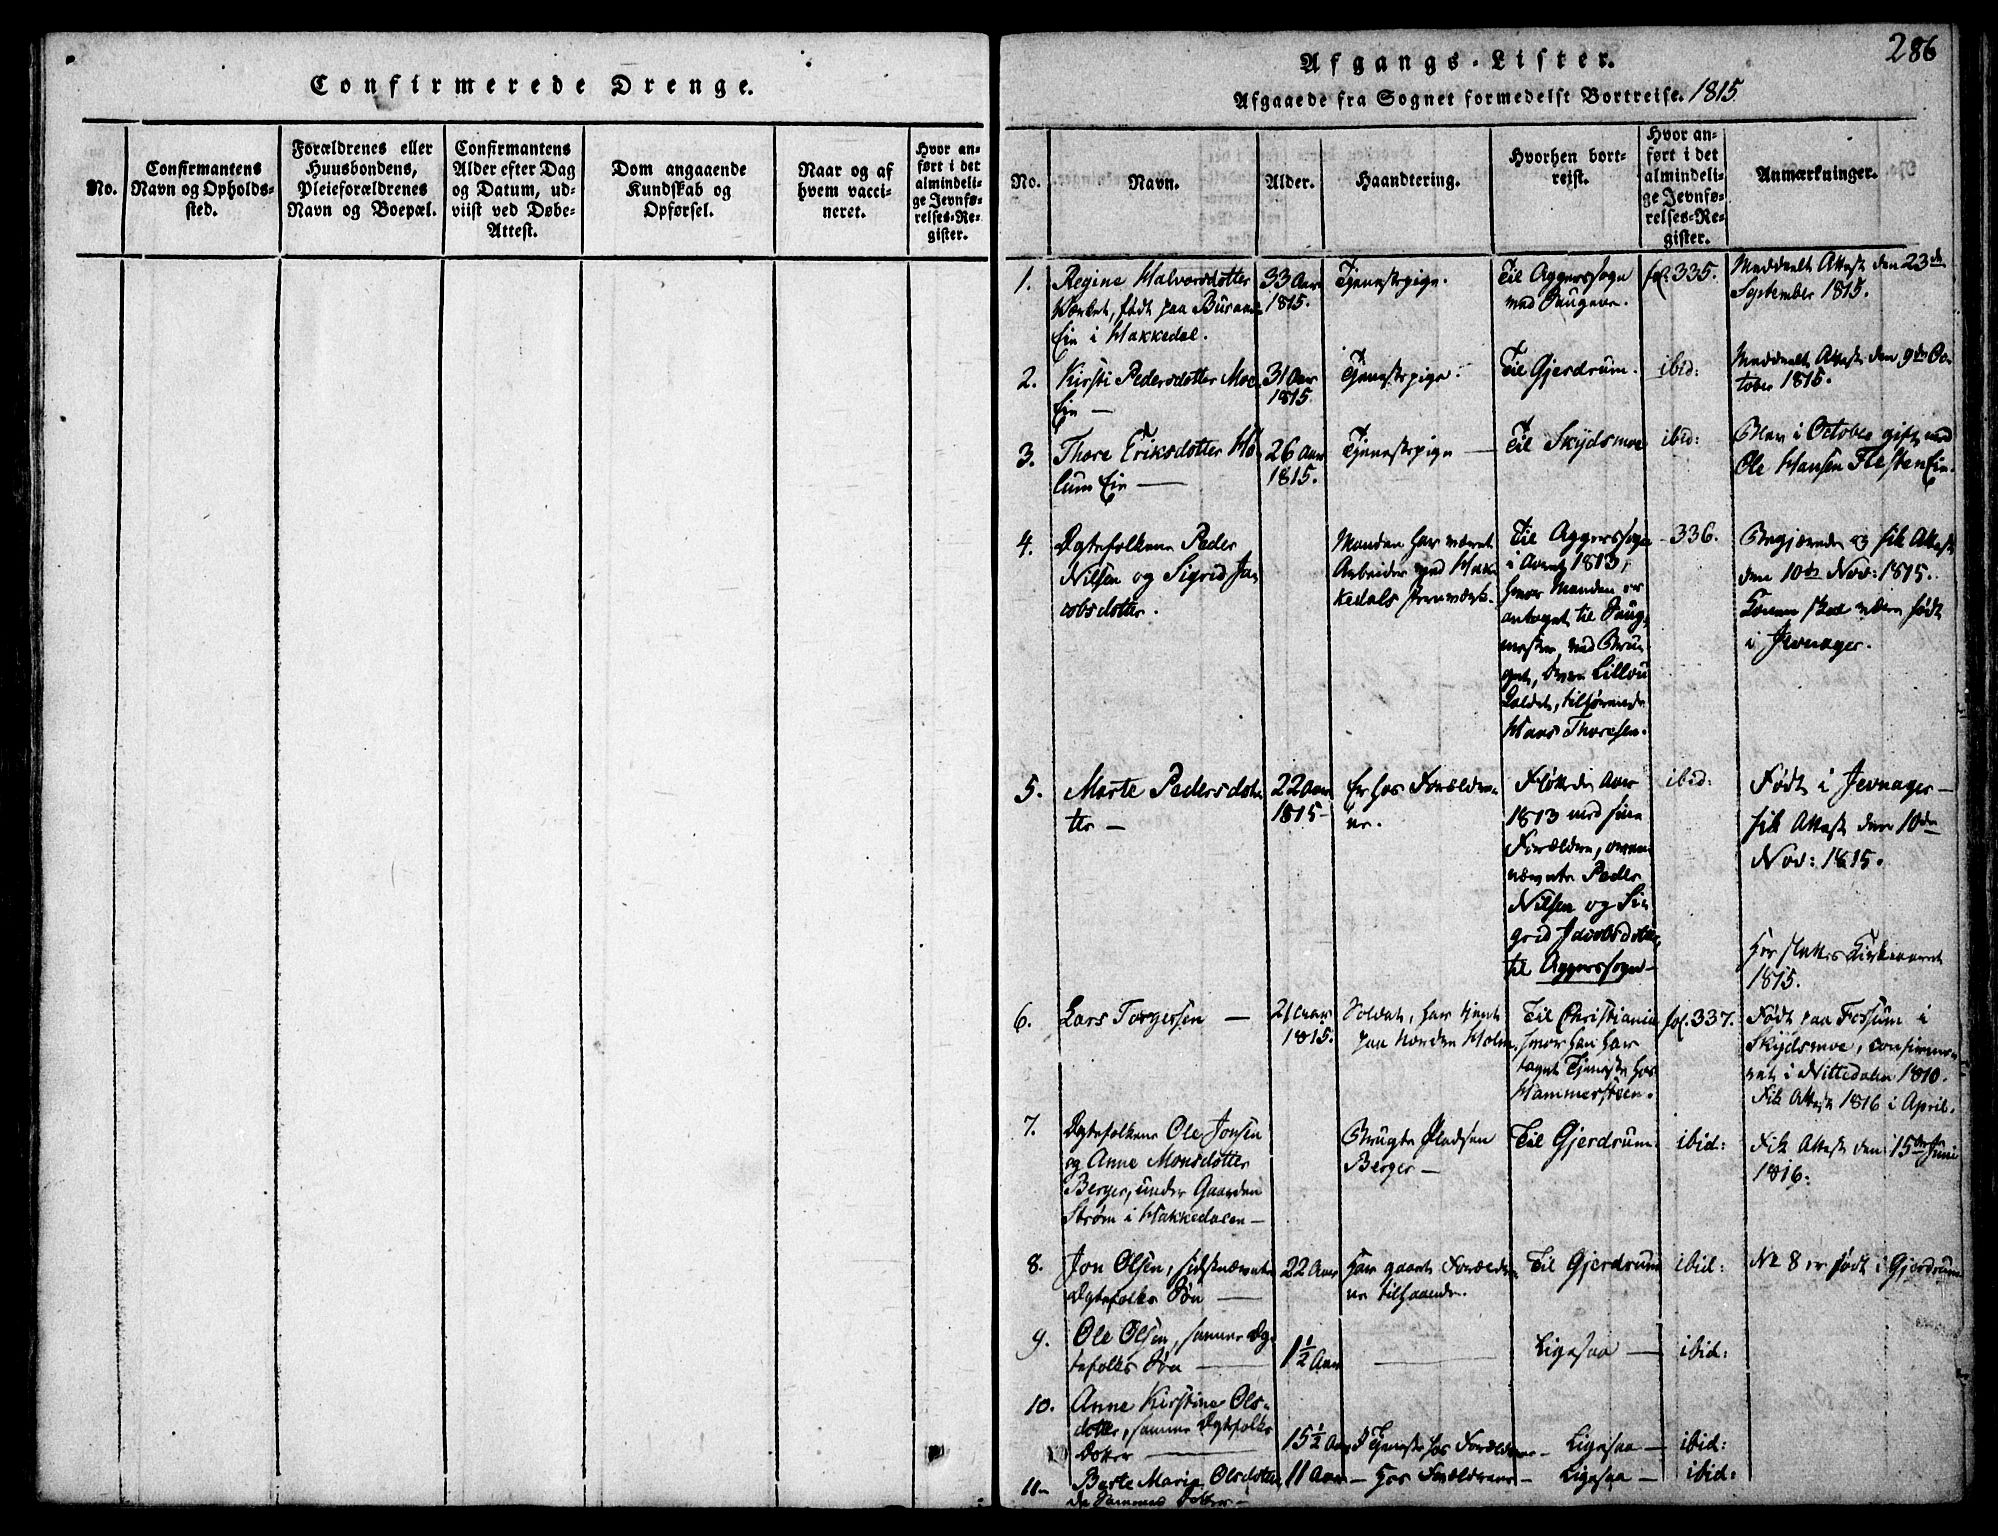 Confirmerede Drenge.
No.
Confirmantens
Navn og Opholds-
sted.
Forældrenes eller
Huusbondens,
Pleieforældrenes
Navn og Boepæl.
Confirmantens
Alder efter Dag
og Datum, ud-
viist ved Døbe-
Attest.
Dom angaaende
Kundskab og
Opførsel.
Naar og af
hvem vacci-
neret.
Hvor an-
ført i det
almindeli-
ge Jevnfø-
relses-Re-
gister.
286
Afgangs-Lister.
Afgaaede fra Sognet formedelst Bortreise. 1815
No.
Navn.
Alder.
Haandtering.
Hvorhen bort-
reist.
Hvor an-
ført i det
almindeli-
ge Jevnfø-
relses-Re-
gister.
Anmærkninger.
1.
Regine Halvorsdotter
Værket, født paa
Eie i Hakkedal.
33 Aar
1815.
Tjenestepige.
Til Aggerssogn
fol. 335.
Meddeelt Attest den 23de
September 1815.
2.
Kirsti Pedersdotter Moe
Eie —
31 Aar
1815.
Tjenestepige.
Til Gjerdrum.
ibid:
Meddeelt Attest den 9de Oc
tober 1815.
3.
Thore Eriksdotter Ho
lum Eie —
26 Aar
1815.
Tjenestepige —
Til Skydsmoe
ibid:
Blev i October gift med
Ole Hansen Flesten Eie.
4.
Ægtefolkene Peder
Nilsen og Sigrid Ja
cobsdotter.
Manden har været
Arbeider ved Hak
kedals Jernværk.
Til Aggerssogn
i Aaret 1813,
hvor Manden er
antaget til Saug
mester ved Bru
get, Lillou
Baldet, tilhørende
Hans Thoresen.
- 336.
Begjærede og fik Attest
den 10de Nov: 1815.
Konen skal være født
i Jevnager.
5.
Marte Pedersdot
ter —
22 Aar
1815 -
Er hos Forældre
ne.
Fløttede Aar
1813 med sine
Forældre, oven
nævnte Peder
Nilsen og Si
grid Jacobsdotter,
til Aggerssogn —
ibid:
Født i Jevnager —
fik Attest den 10de
Nov: 1815.
Her sluttes Kirkeaaret
1815.
6.
Lars Torgersen —
21 Aar
1815.
Soldat, har tjent
paa Norden Holm
Til Christiania
hvor han har
taget Tjeneste hos
Hammersteen.
fol. 337.
Født paa Fossum i
Skydsmoe, confirme-
ret i Nittedalen 1810.
Fik Attest 1816 i April.
7.
Ægtefolkene Ole Jonsen
og Anne Monsdotter
Berger, under Gaarden
Strøm i Hakkedalen —
Brugte Pladsen
Berger —
Til Gjerdrum.
ibid:
Fik Attest den 15de Juni
1816.
8.
Jon Olsen, sidstnævnte
Ægtefolks Søn —
22 Aar
Har gaaet Forældre
ne tilhaande.
Til Gjerdrum
ibid:
No 8 er født i Gjerdrum
9.
Ole Olsen, samme Æg
tefolks Søn —
1½ Aar
Ligesaa —
ibid:
10.
Anne Kirstine Ols-
dotter, samme Ægtefolks
Dotter —
15½ Aar
I Tjeneste hos Forældrene —
Ligesaa —
ibid:
11 -
Berte Marie Olsdotter
de Sammes Dotter —
11 Aar
— Hos Forældrene —
Ligesaa —
ibid: